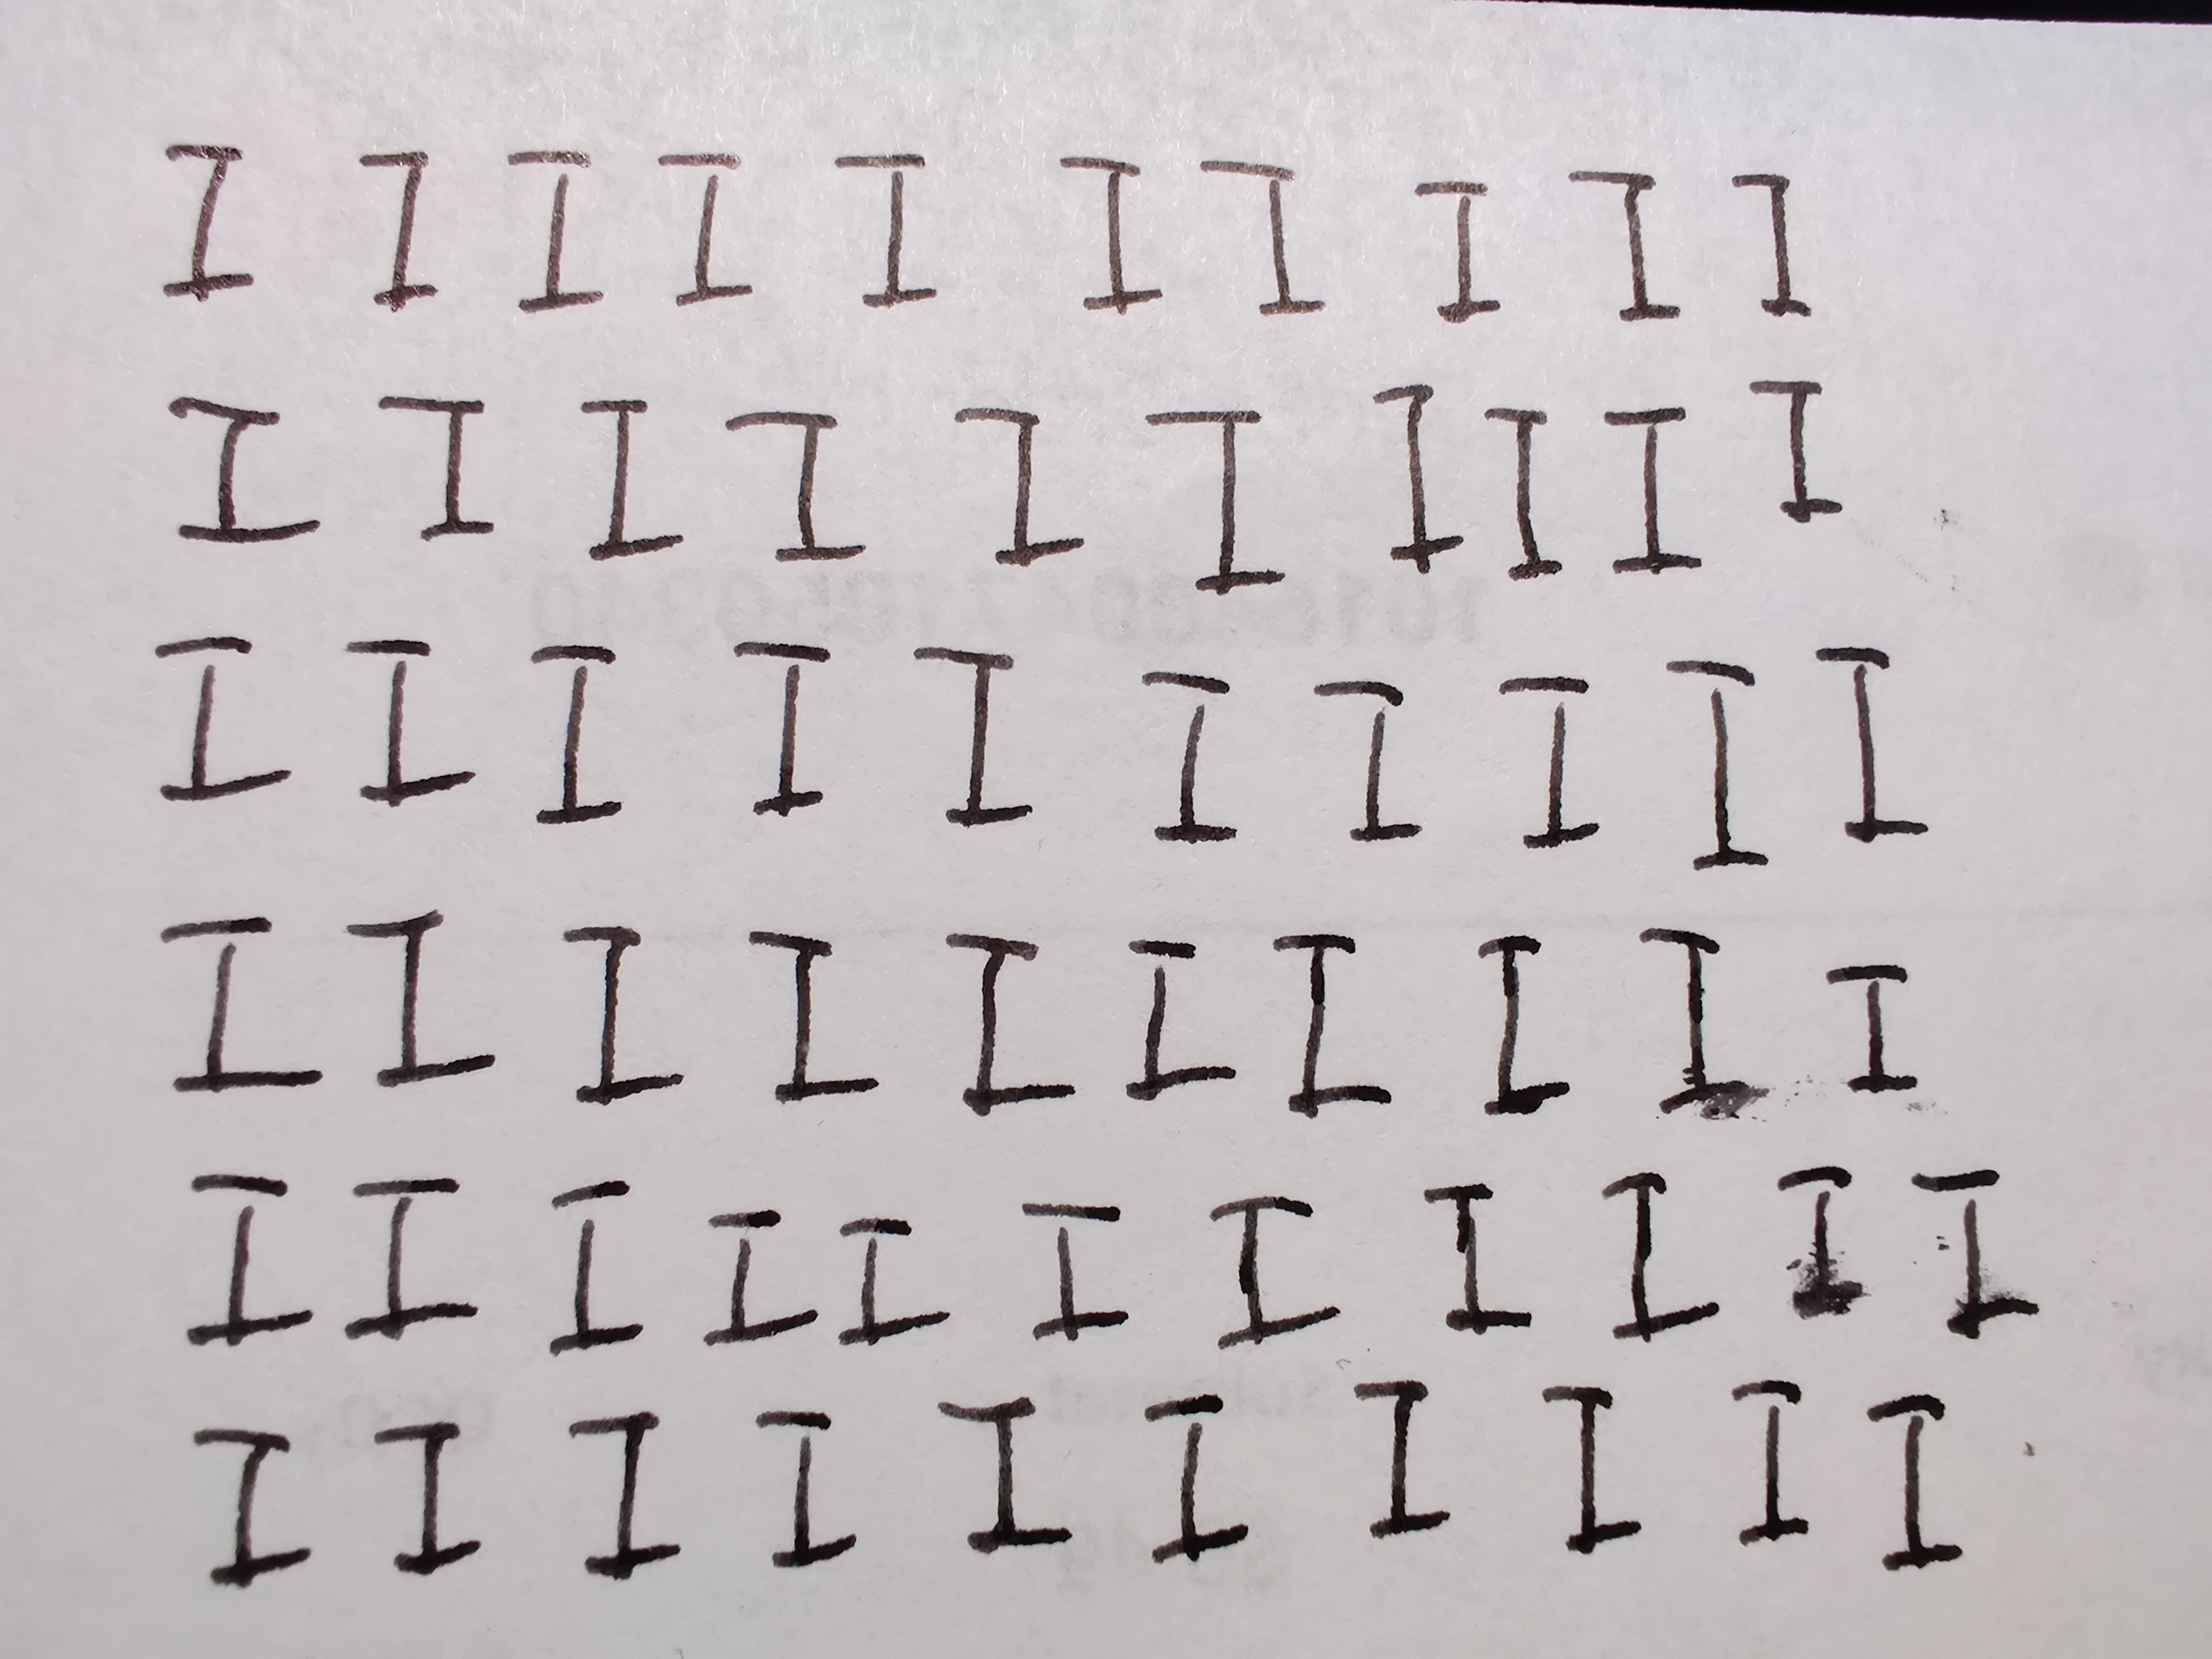 I I I I I I I I I I
I I I I I I I I I I
I I I I I I I I I I
I I I I I I I I I I
I I I I I I I I I I I
I I I I I I I I I I